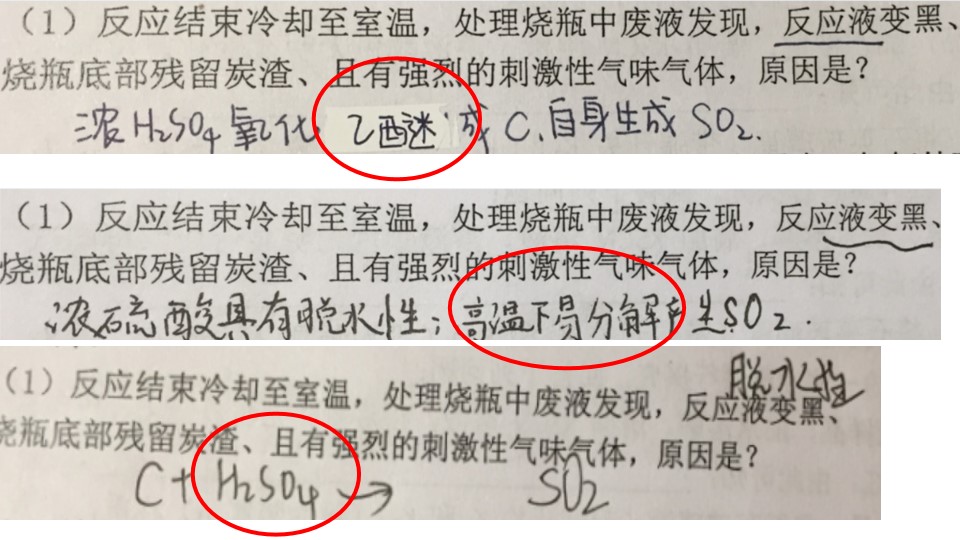 （1）反应结束冷却至室温，处理烧瓶中废液发现，反应液变黑、
烧瓶底部残留炭渣、且有强烈的刺激性气味气体，原因是？
浓H₂SO₄氧化 乙醚 成C.自身生成SO₂.
（1）反应结束冷却至室温，处理烧瓶中废液发现，反应液变黑、
烧瓶底部残留炭渣、且有强烈的刺激性气味气体，原因是？
浓硫酸具有脱水性；高温下易分解产生SO₂.
脱水性
（1）反应结束冷却至室温，处理烧瓶中废液发现，反应液变黑、
烧瓶底部残留炭渣、且有强烈的刺激性气味气体，原因是？
C+H₂SO₄→ SO₂